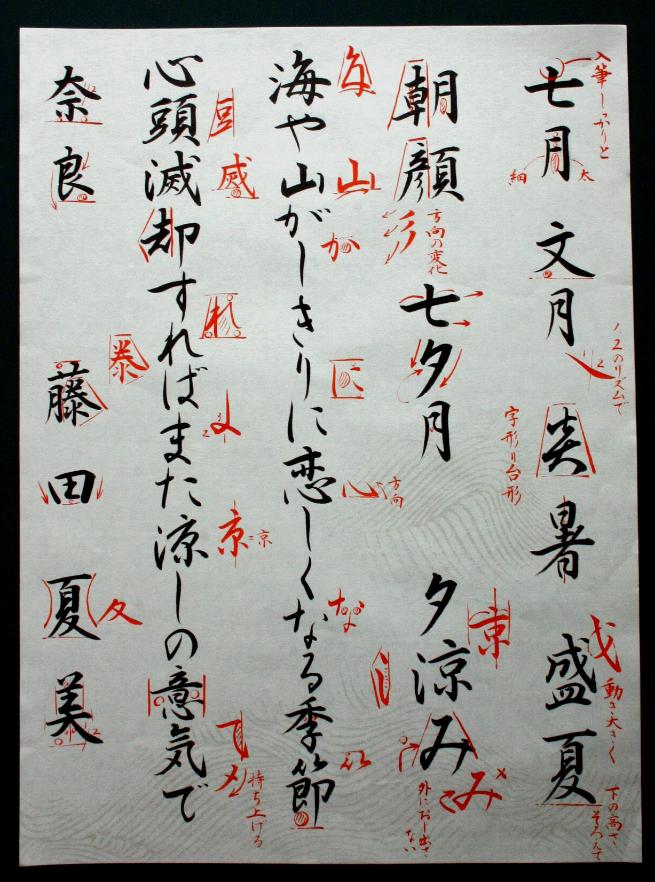 七月 文月 炎暑 盛夏
入筆しっかりと
細 太
1、2のリズムで
字形は台形
動き大きく
下の高さそろえて
朝顔 七夕月 夕涼み
方向の変化
涼
み
外におし出さない
海や山がしきりに恋しくなる季節
山
が
に
心
方向
な
し
心頭滅却すればまた涼しの意気で
豆
ま
京 京
持ち上げる
奈良 藤田夏美